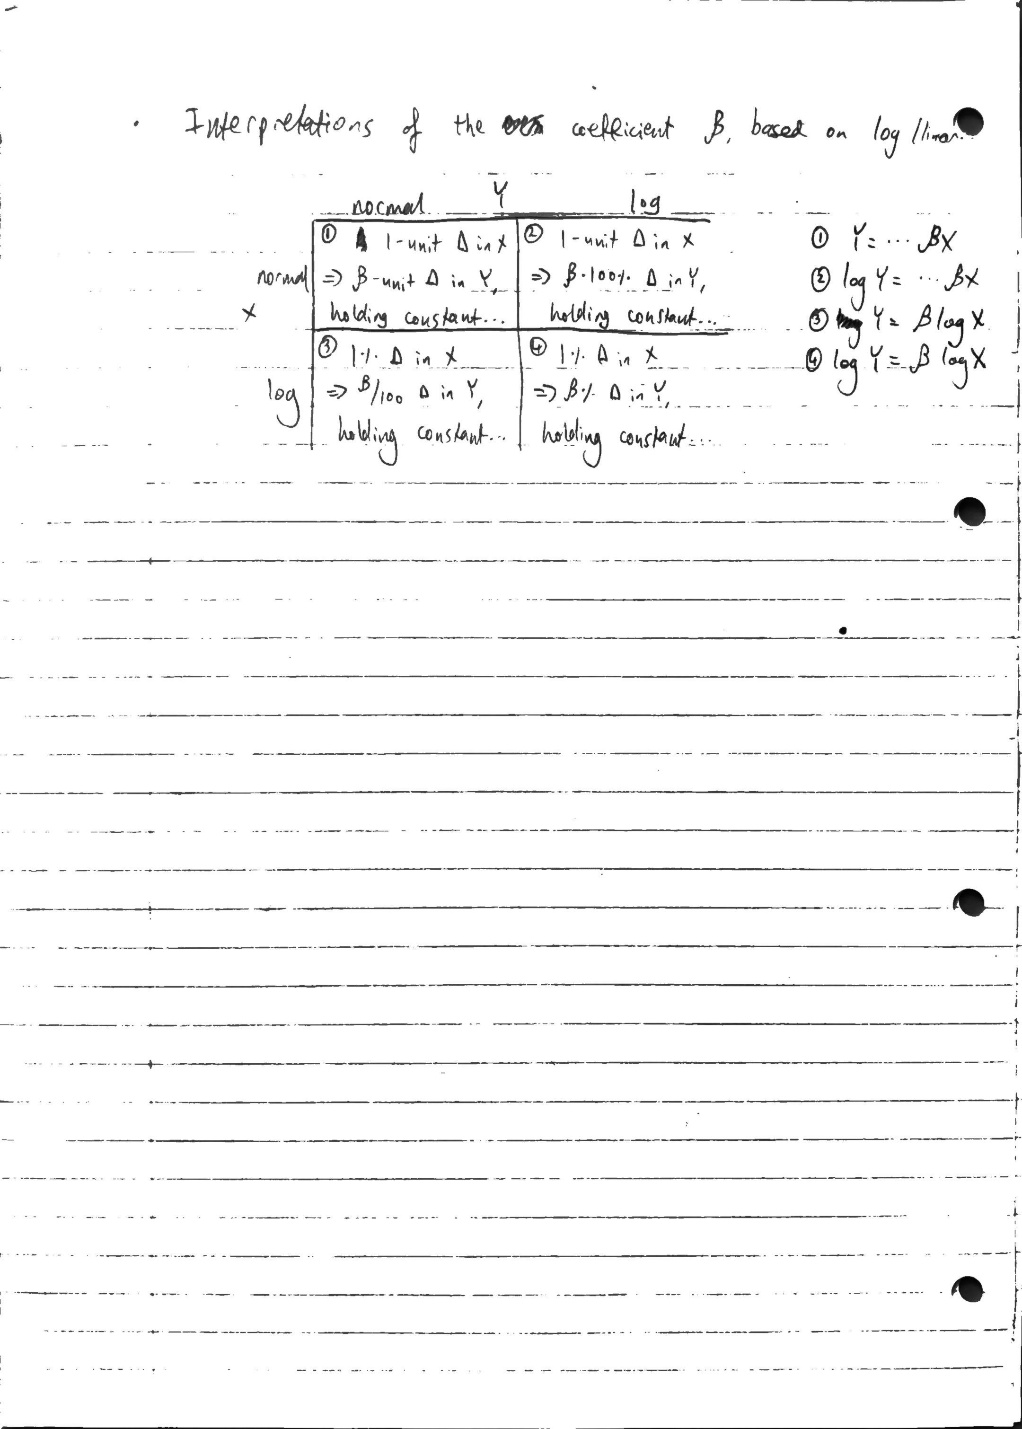 · Interpretations of the coefficient β, based on log /linear
Y
normal log
① 1-unit Δ in X
normal ⇒ β-unit Δ in Y,
X holding constant...
② 1-unit Δ in X
⇒ β·100% Δ in Y,
holding constant...
③ 1% Δ in X
log ⇒ β/100 Δ in Y,
holding constant...
④ 1% Δ in X
⇒ β% Δ in Y,
holding constant...
① Y = ... βX
② log Y = ... βX
③ Y = β log X
④ log Y = β log X